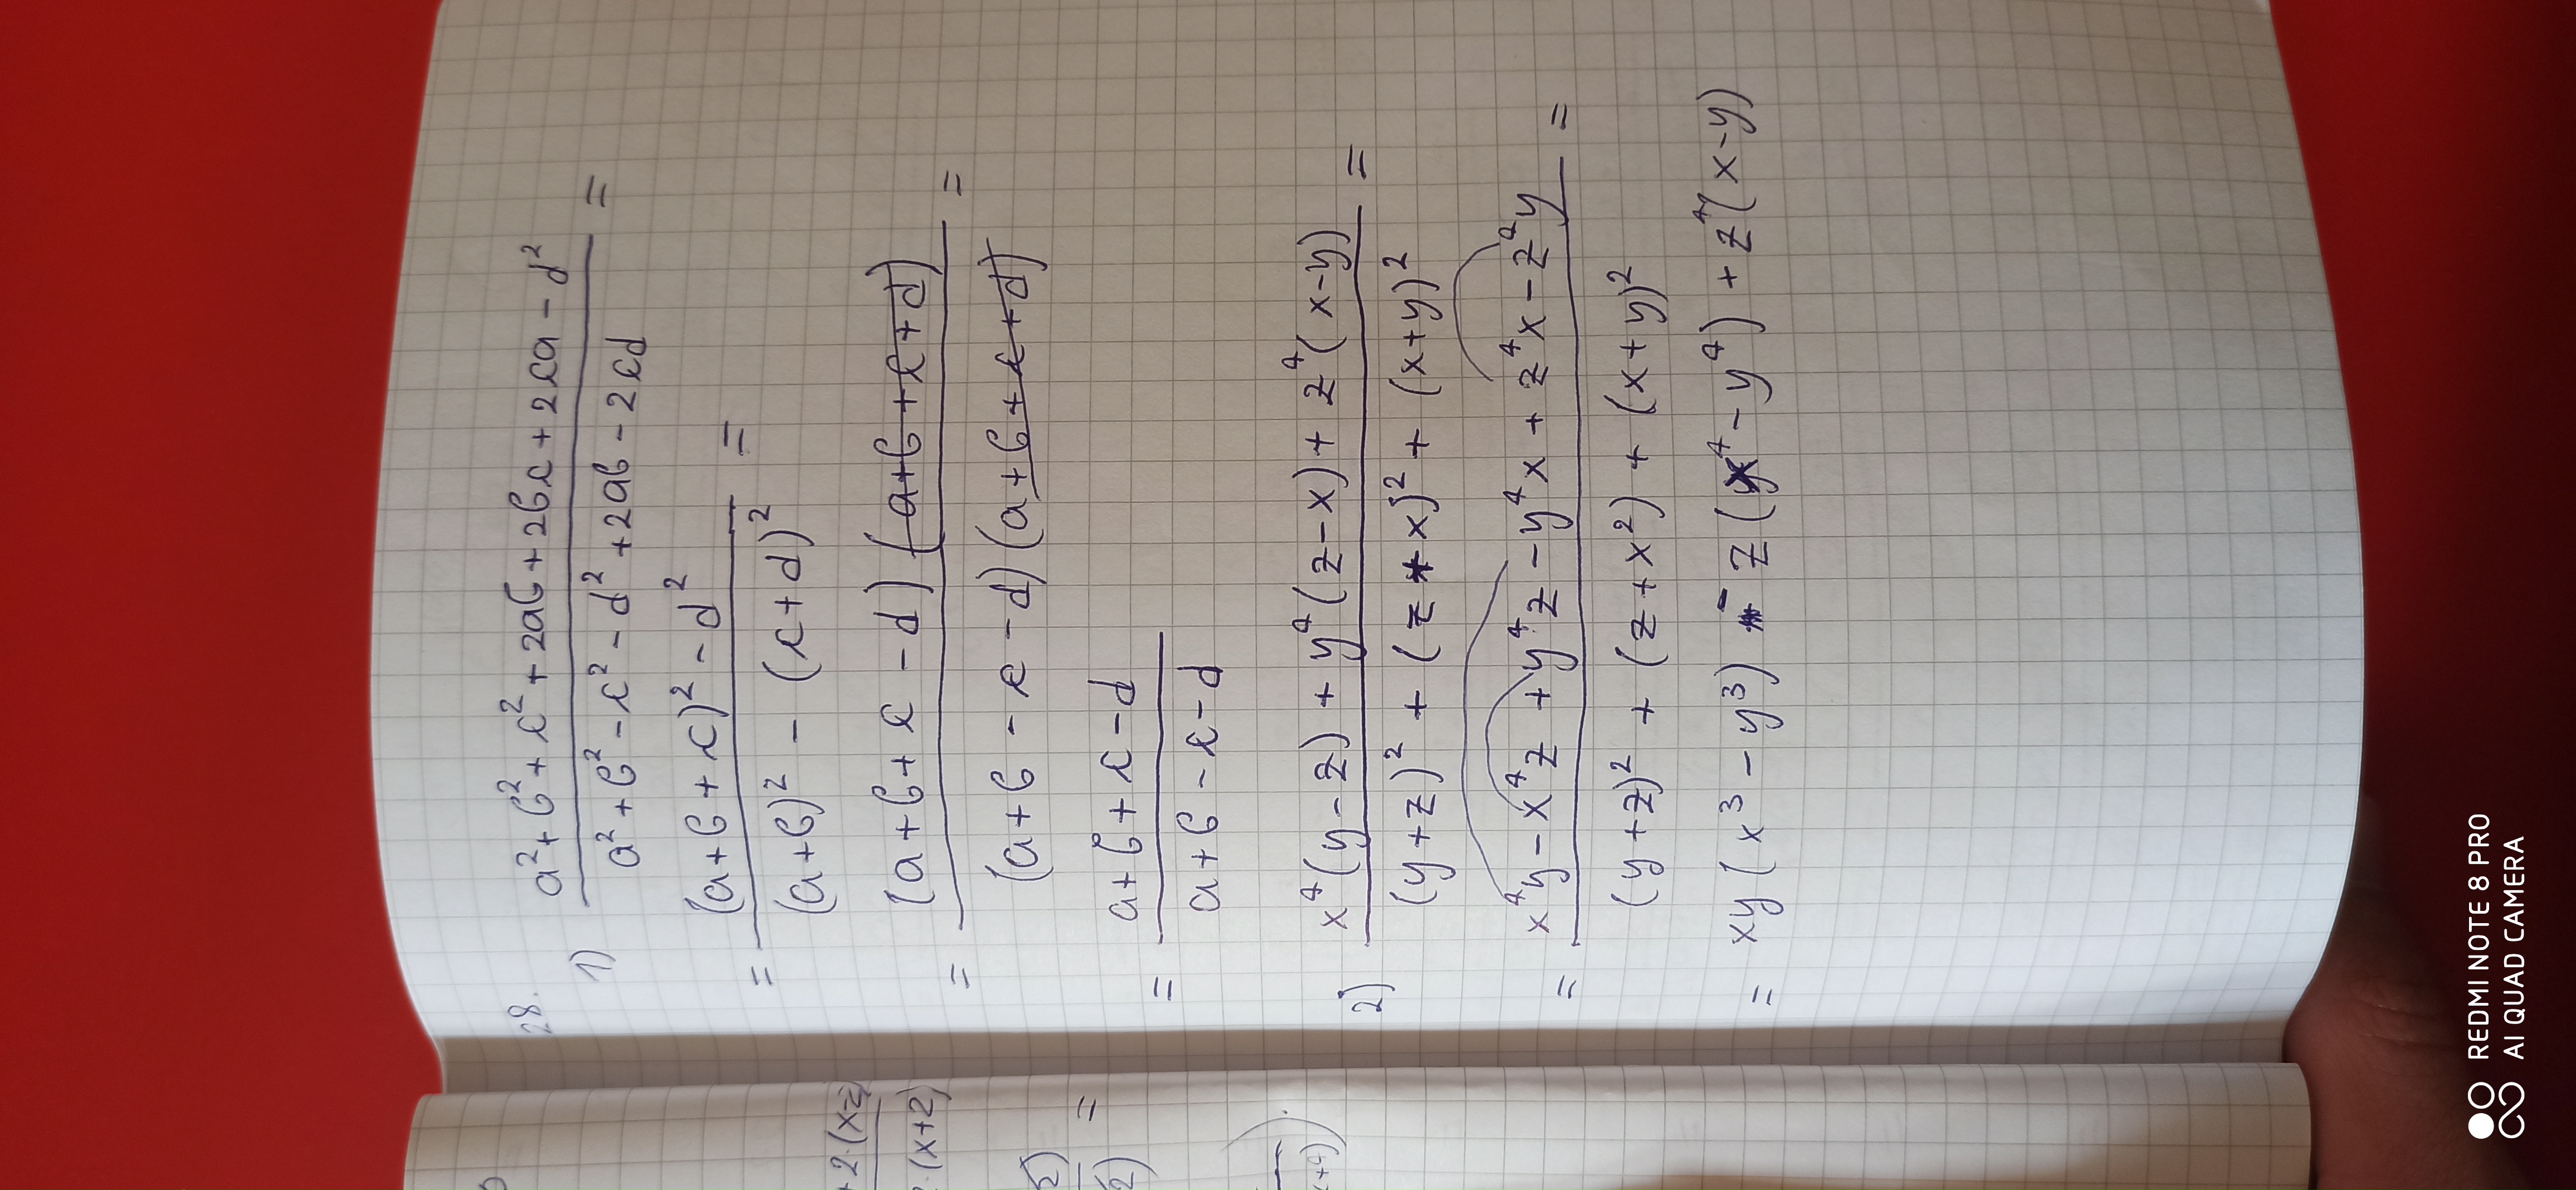 28.
1) a²+b²+c²+2ab+2bc+2ca-d²
a²+b²-c²-d²+2ab-2cd =
= (a+b+c)²-d²
(a+b)² - (c+d)² =
= (a+b+c-d)(a+b+c+d)
(a+b-c-d)(a+b+c+d) =
= a+b+c-d
a+b-c-d
2) x⁴(y-z)+y⁴(z-x)+z⁴(x-y)
(y+z)²+(z+x)²+(x+y)² =
= x⁴y-x⁴z+y⁴z-y⁴x+z⁴x-z⁴y
(y+z)²+(z+x²)+(x+y)² =
= xy(x³-y³)-z(x⁴-y⁴)+z⁴(x-y)
+2·(x=2
·(x+2)
2)
2) =
x+4)
REDMI NOTE 8 PRO
AI QUAD CAMERA